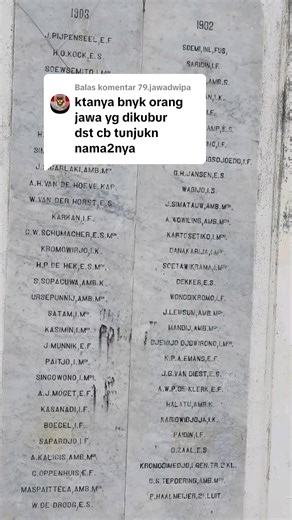 1903
J. PIJPENSEEL, E.F.
H.O. KOCK, E.S.
SOEWSEMITO, I.
Balas komentar 79.jawadwipa
ktanya bnyk orang
jawa yg dikubur
dst cb tunjukn
nama2nya
A.H. VAN DE HOEVE, KAP.
W. VAN DER HORST, E.S.
KARKAN, I.F.
C.W. SCHUMACHER, E.S.Mᴿ.
KROMOWIRJO, I.K.
H.P. DE HEK, E.S.Mᴿ.
S. SOPACUWA, AMB.K.
URSEPUNNIJ, AMB.Mᴿ.
SATAM, I.Mᴿ.
KASIMIN, I.Mᴿ.
J. MUNNIK, E.F.
PAITJO, I.Mᴿ.
SINGOWONO, I.Mᴿ.
A.J. MOGET, E.F.
KASANADI, I.F.
BOEGEL, I.F.
SAPARDJO, I.F.
A. KALIGIS, AMB.Mᴿ.
C. OPPENHUIS, E.F.
MASPAITTELA, AMB.Mᴿ.
W. DE DROOG, E.S.
1902
SOEMI, INL. FUS.
SARIDIN, I.F.
G.H. JANSEN, E.S.
WAGIJO, I.S.
J. SIMATAUW, AMB.Mᴿ.
A. WORILING, AMB.Mᴿ.
KARTOSETIKO, I.Mᴿ.
DANAKARIJA, I.Mᴿ.
SOETAWIKRAMA, I.Mᴿ.
DEKKER, E.S.
WONGDIKROMO, I.F.
J. LEMSUN, AMB.Mᴿ.
MANDIJ, AMB.Mᴿ.
DJEMIJO DJOWIRONO, I.Mᴿ.
K.P.A. EMANS, E.F.
J.G. VAN DIEST, E.S.
A.W.P. DE KLERK, E.F.
HALATU, AMB.K.
KARIOWIDJOJA, I.K.
PAIDIN, I.F.
D. ZAAL, E.S.
KROMODIMEDJO, I. GEN. TR. 2ᴱ KL.
D.S. TEFDERING, AMB.Mᴿ.
P. HAALMEIJER, 2ᴱ LUIT.